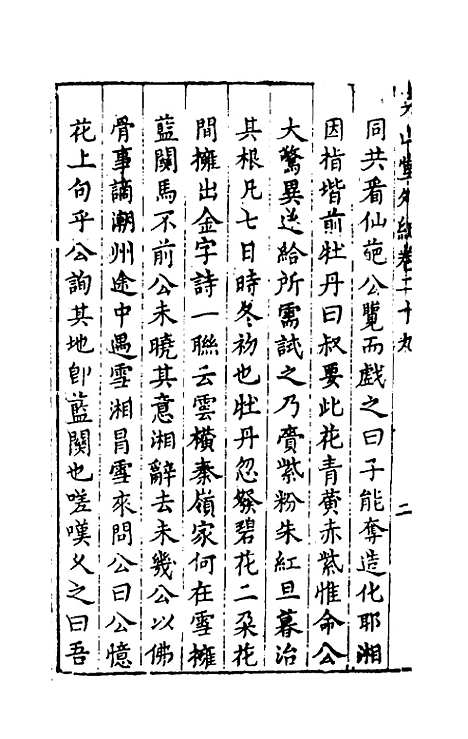 堯山堂外紀卷二十九
二
同共看仙葩公覽而戲之曰子能奪造化耶湘
因指堦前牡丹曰叔要此花青黃赤紫惟命公
大驚異遂給所需試之乃賫紫粉朱紅旦暮治
其根凡七日時冬初也牡丹忽發碧花二朶花
間擁出金字詩一聯云雲橫秦嶺家何在雪擁
藍関馬不前公未曉其意湘辭去未幾公以佛
骨事謫潮州途中遇雪湘冒雪來問公曰公憶
花上句乎公詢其地卽藍関也嗟嘆乆之曰吾